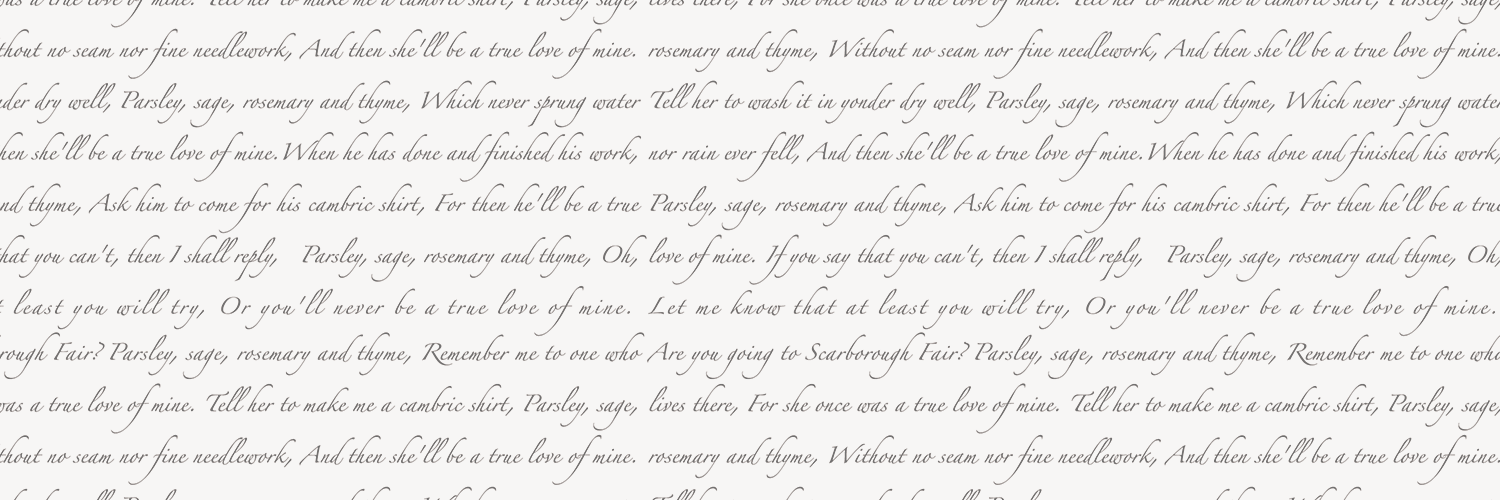 was a true love of mine. Tell her to make me a cambric shirt, Parsley, sage, lives there, For she once was a true love of mine. Tell her to make me a cambric shirt, Parsley, sage,
thout no seam nor fine needlework, And then she'll be a true love of mine. rosemary and thyme, Without no seam nor fine needlework, And then she'll be a true love of mine.
der dry well, Parsley, sage, rosemary and thyme, Which never sprung water Tell her to wash it in yonder dry well, Parsley, sage, rosemary and thyme, Which never sprung water
hen she'll be a true love of mine. When he has done and finished his work, nor rain ever fell, And then she'll be a true love of mine. When he has done and finished his work,
nd thyme, Ask him to come for his cambric shirt, For then he'll be a true Parsley, sage, rosemary and thyme, Ask him to come for his cambric shirt, For then he'll be a true
hat you can't, then I shall reply, Parsley, sage, rosemary and thyme, Oh, love of mine. If you say that you can't, then I shall reply, Parsley, sage, rosemary and thyme, Oh,
t least you will try, Or you'll never be a true love of mine. Let me know that at least you will try, Or you'll never be a true love of mine.
rough Fair? Parsley, sage, rosemary and thyme, Remember me to one who Are you going to Scarborough Fair? Parsley, sage, rosemary and thyme, Remember me to one who
was a true love of mine. Tell her to make me a cambric shirt, Parsley, sage, lives there, For she once was a true love of mine. Tell her to make me a cambric shirt, Parsley, sage,
thout no seam nor fine needlework, And then she'll be a true love of mine. rosemary and thyme, Without no seam nor fine needlework, And then she'll be a true love of mine.